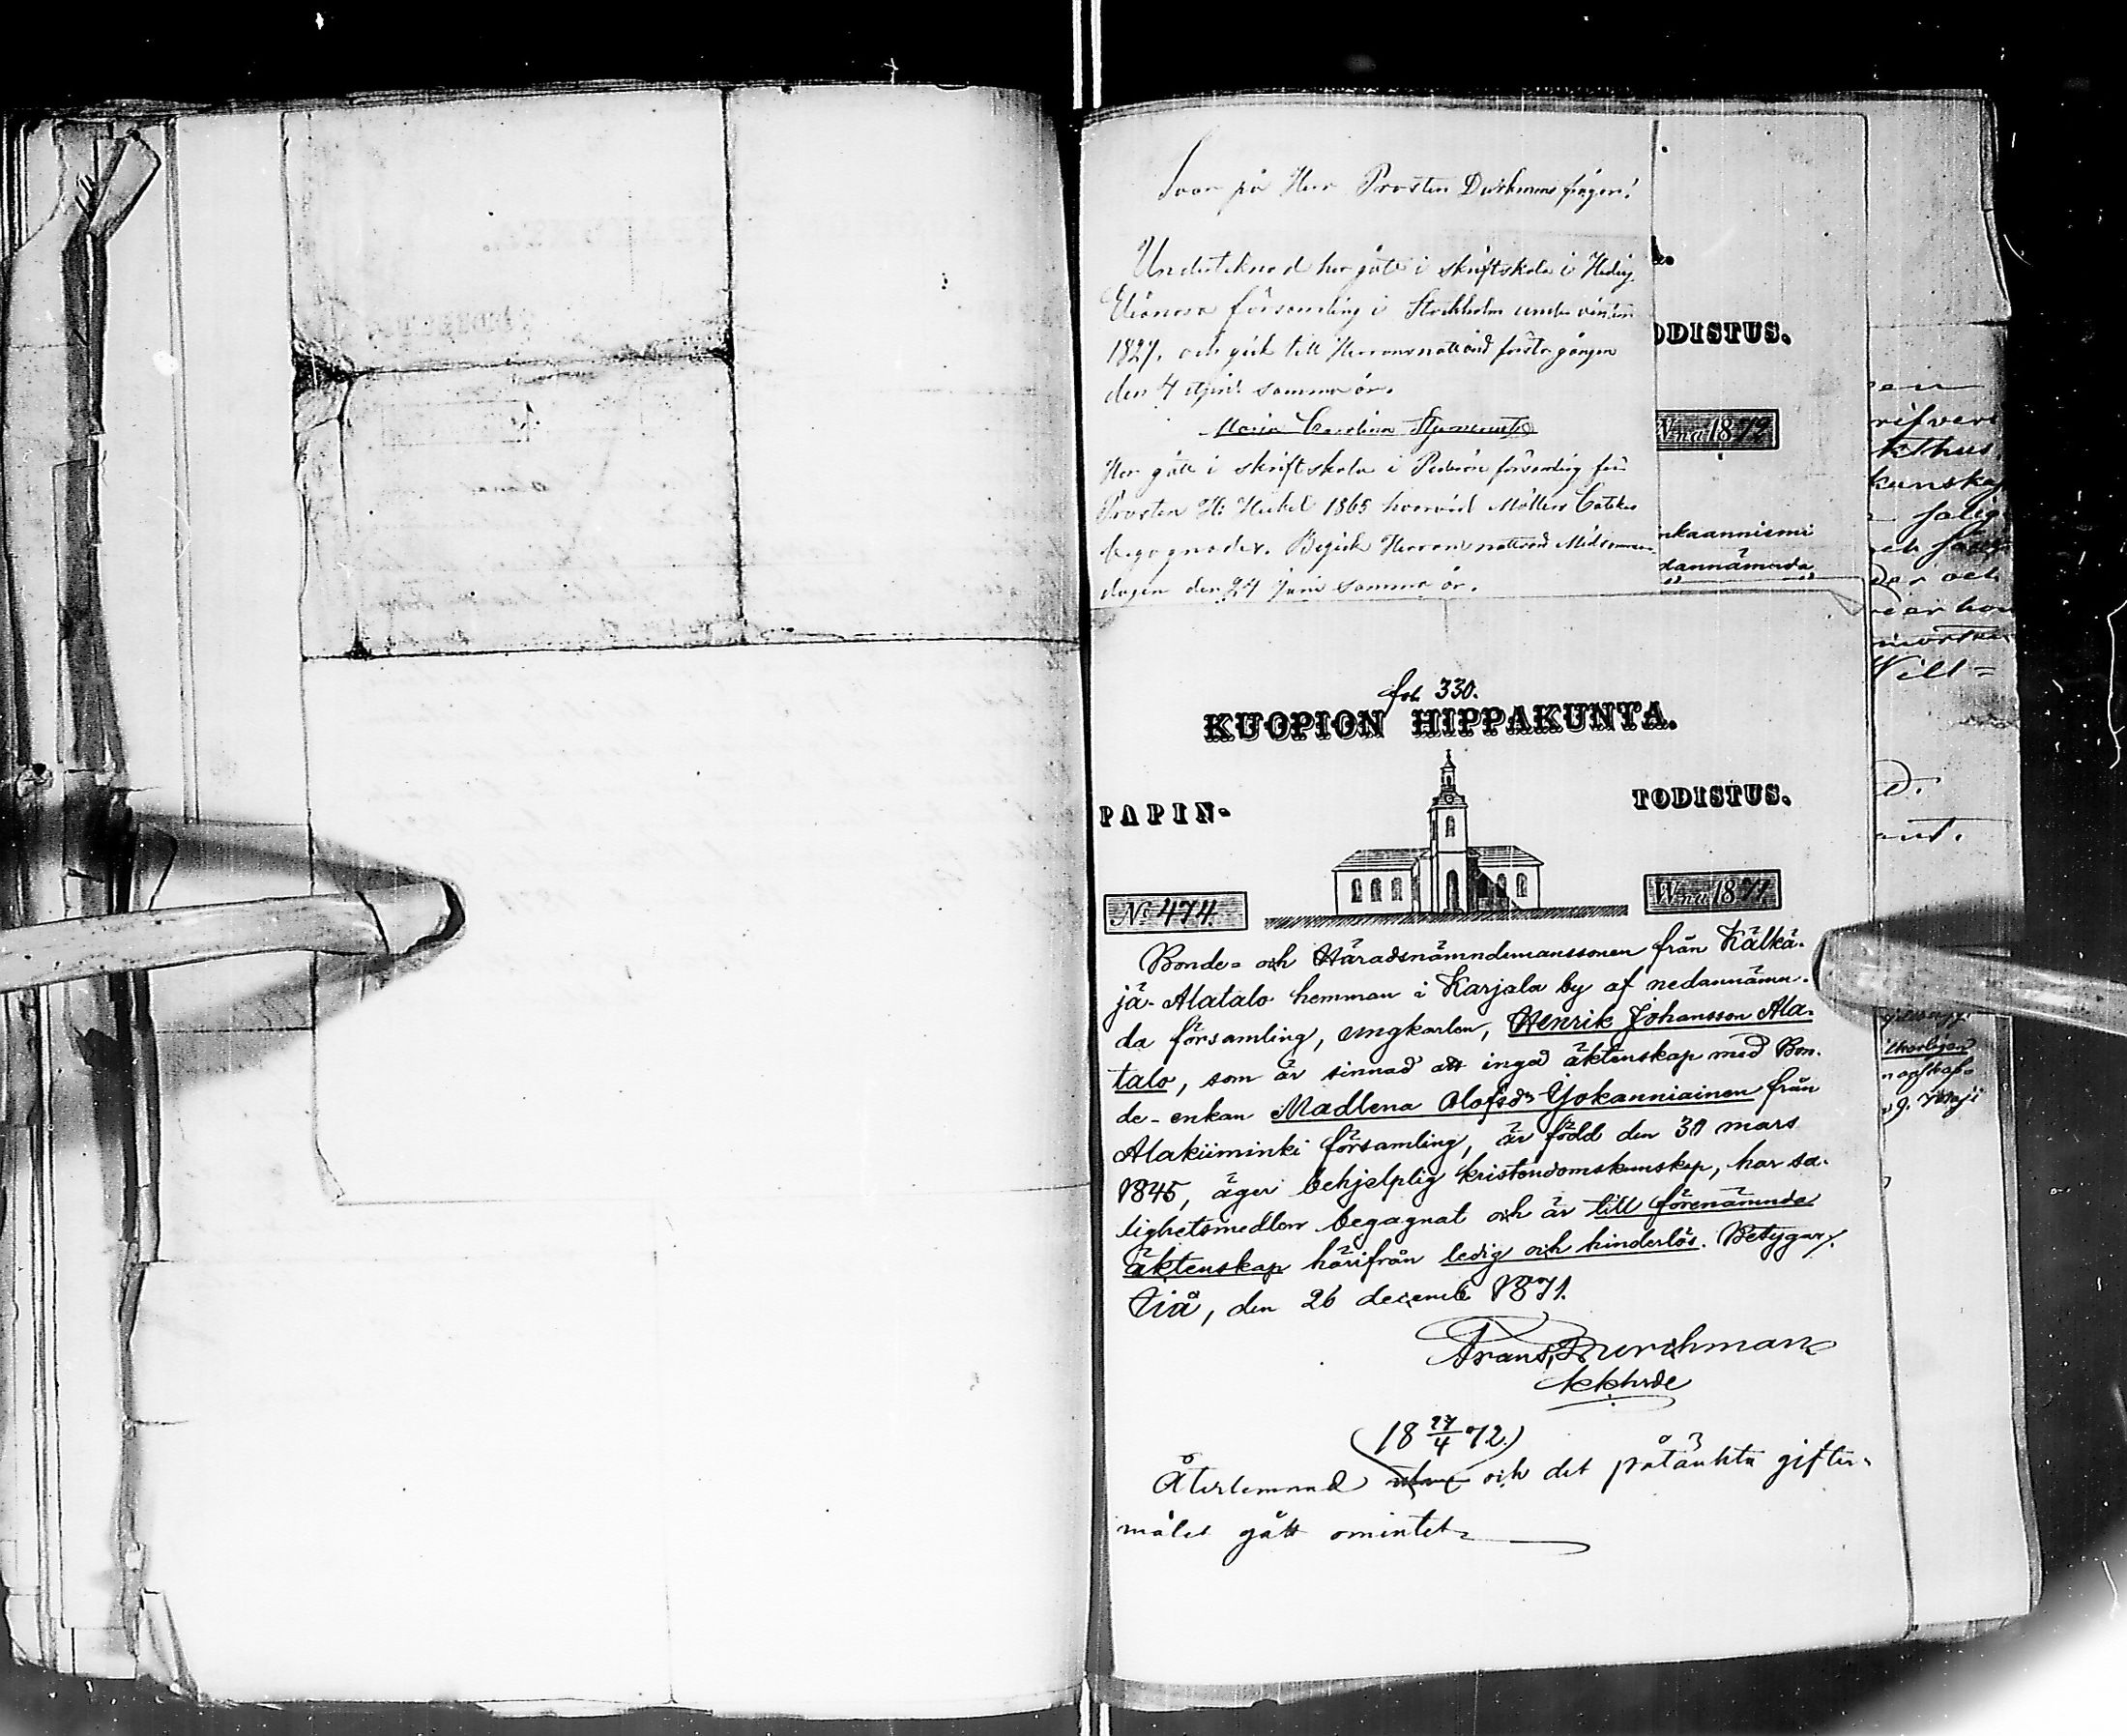 Svar på Herr Prosten Durchmans frågor!
Undertecknad har gått i skriftskola i Hedvig
Eleonora församling i Stockholm under vintern
1827. och gick till Herrans nattvard första gången
den 4 April samma år.
Maria Carolina
Har gått i skriftskola i Pedersöre församling för
Prosten H: Heikel 1865 hvarvid Möllers Cateches
begagnades. Begick Herrans nattvard Midsommar-
dagen den 24 Juni samma år.
ODISTUS.
W:na 1872
nkaanniemi
dannämnda
fol. 330.
KUOPION HIPPAKUNTA.
PAPIN-
TODISTUS.
No 474.
W:na 1871
Bonde- och Häradsnämndemanssonen från Kälkä-
jä-Alatalo hemman i Karjala by af nedannämn-
da församling, ungkarlen, Henrik Johansson Ala-
talo, som är sinnad att ingå äktenskap med Bon-
de-enkan Madlena Olofsdr Yokanniainen från
Alakiiminki församling, är född den 30 mars
1845, äger behjelplig kristendomskunskap, har sa-
lighetsmedlen begagnat och är till förenämnda
äktenskap härifrån ledig och hinderlös. Betygar/.
Iiå, den 26 decemb 1871.
Frans, Durchman
kkhrde
(18 27/4 72.)
Återlemnad och det påtänkta gifter-
målet gått omintet
en
rifver
kthus
kunskap
salig
och
der och
är hon
Vilt=
D.
ant.